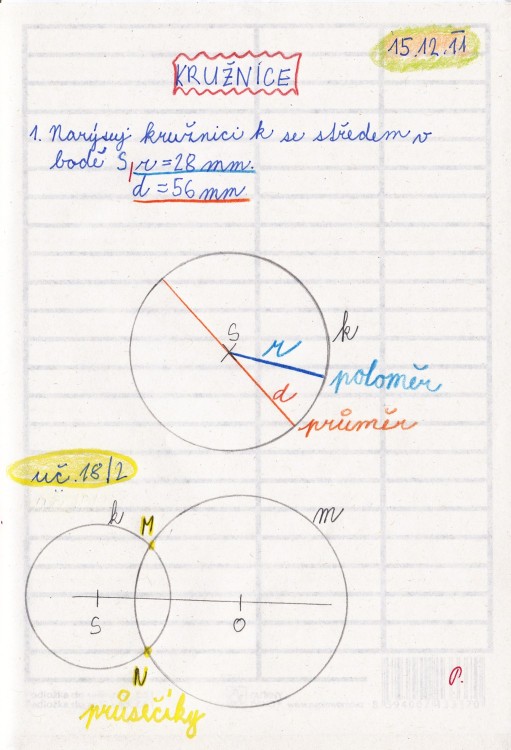 15.12.11
KRUŽNICE
1. Narýsuj kružnici k se středem v
bodě S, r = 28 mm.
d = 56 mm
S
k
r
poloměr
d
průměr
uč. 18/2
k
M
m
S
O
N
průsečíky
P.